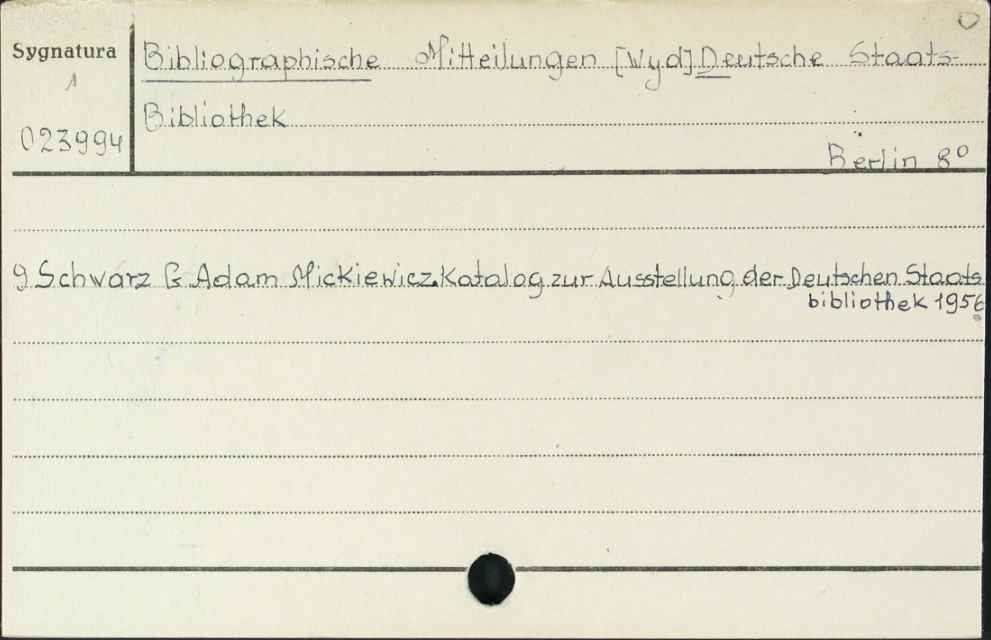 Sygnatura
1
023994
Bibliographische Mitteilungen [Wyd] Deutsche Staats-
Bibliothek
Berlin 8°
9 Schwarz G. Adam Mickiewicz. Katalog zur Ausstellung der Deutschen Staats
bibliothek 1956